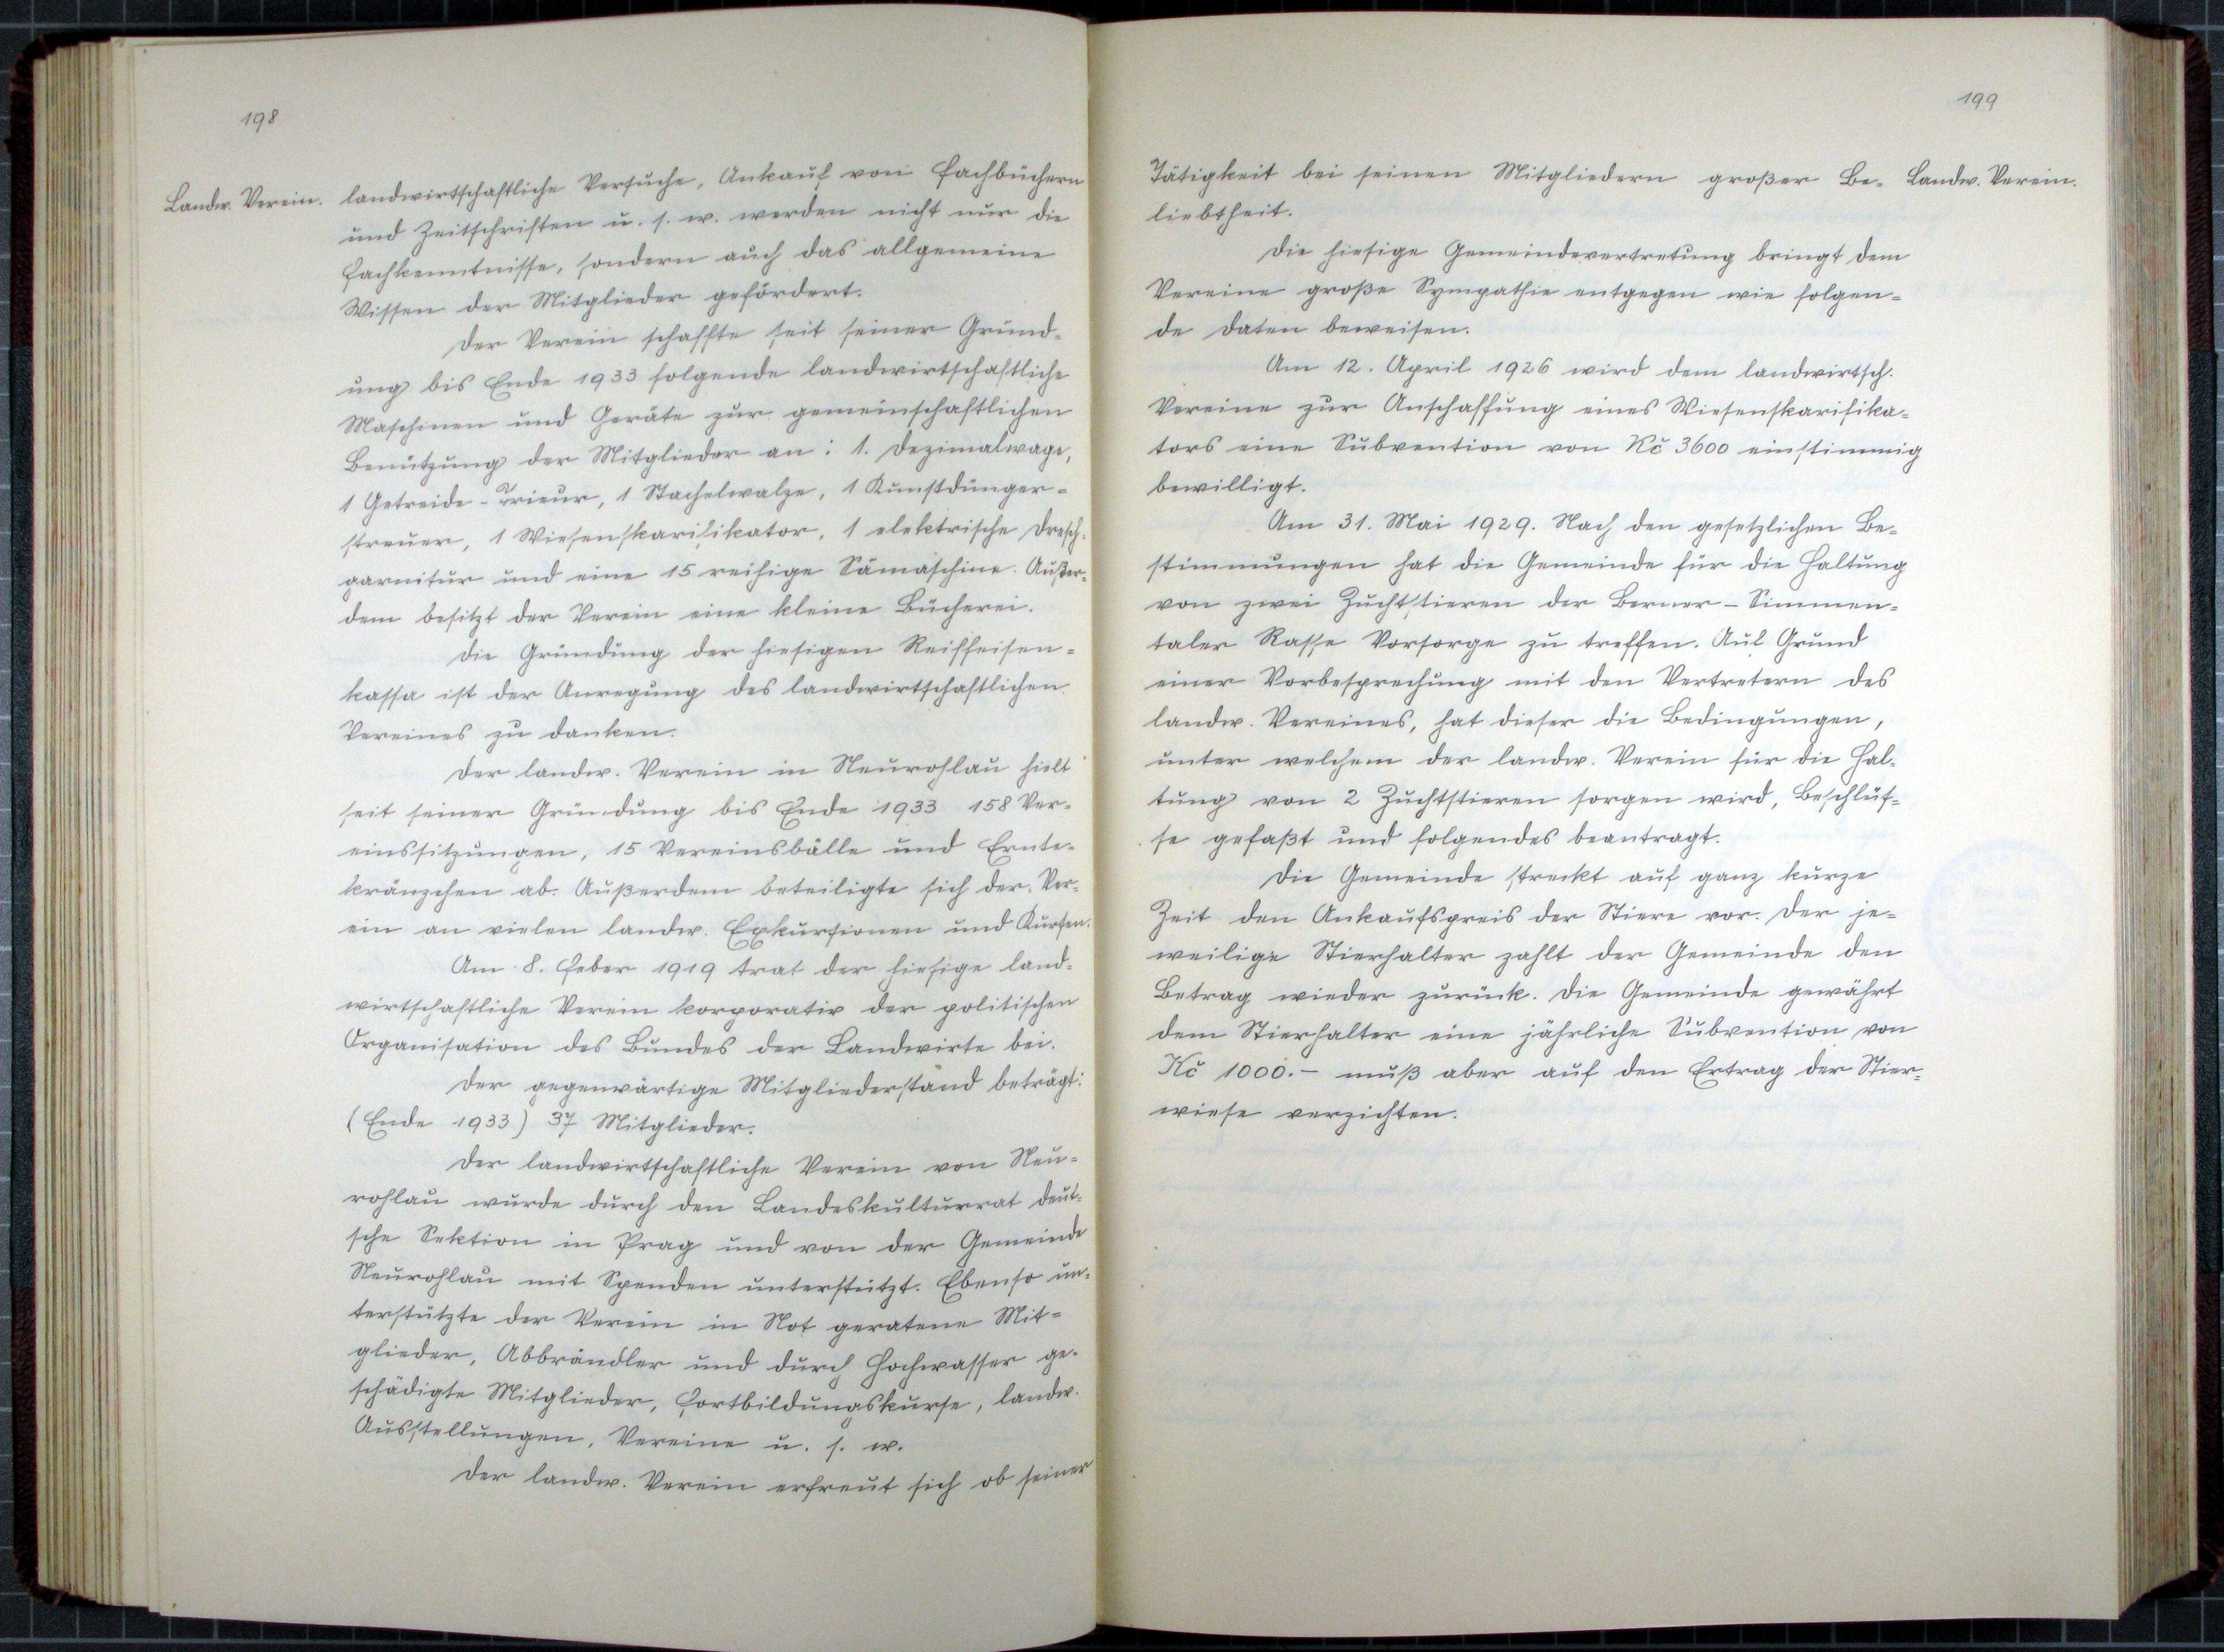 198
Landw. Verein.
landwirtschaftliche Versuche, Ankauf von Fachbüchern
und Zeitschriften u. s. w. werden nicht nur die
Fachkenntnisse, sondern auch das allgemeine
Wissen der Mitglieder gefördert.
Der Verein schaffte seit seiner Gründ-
ung bis Ende 1933 folgende landwirtschaftliche
Maschinen und Geräte zur gemeinschaftlichen
Benützung der Mitglieder an: 1. Dezimalwage,
1 Getreide-Trieur, 1 Stachelwalze, 1 Kunstdünger-
streuer, 1 Wiesenskarifikator, 1 elektrische Dresch-
garnitur und eine 15 reihige Sämaschine. Außer-
dem besitzt der Verein eine kleine Bücherei.
Die Gründung der hiesigen Reiffeisen-
kassa ist der Anregung des landwirtschaftlichen
Vereines zu danken.
Der landw. Verein in Neurohlau hielt
seit seiner Gründung bis Ende 1933 158 Ver-
einssitzungen, 15 Vereinsbälle und Ernte-
kränzchen ab. Außerdem beteiligte sich der Ver-
ein an vielen landw. Exkursionen und Kursen.
Am 8. Feber 1919 trat der hiesige land-
wirtschaftliche Verein korporativ der politischen
Organisation des Bundes der Landwirte bei.
Der gegenwärtige Mitgliederstand beträgt:
(Ende 1933) 37 Mitglieder.
Der landwirtschaftliche Verein von Neu-
rohlau wurde durch den Landeskulturrat deut-
sche Sektion in Prag und von der Gemeinde
Neurohlau mit Spenden unterstützt. Ebenso un-
terstützte der Verein in Not geratene Mit-
glieder, Abbrändler und durch Hochwasser ge-
schädigte Mitglieder, Fortbildungskurse, landw.
Ausstellungen, Vereine u. s. w.
Der landw. Verein erfreut sich ob seiner
199
Landw. Verein.
Tätigkeit bei seinen Mitgliedern großer Be-
liebtheit.
Die hiesige Gemeindevertretung bringt dem
Vereine große Sympathie entgegen wie folgen-
de Daten beweisen.
Am 12. April 1926 wird dem landwirtsch.
Vereine zur Anschaffung eines Wiesenskarifika-
tors eine Subvention von Kč 3600 einstimmig
bewilligt.
Am 31. Mai 1929. Nach den gesetzlichen Be-
stimmungen hat die Gemeinde für die Haltung
von zwei Zuchtstieren der Berner-Simmen-
taler Rasse Vorsorge zu treffen. Auf Grund
einer Vorbesprechung mit den Vertretern des
landw. Vereines, hat dieser die Bedingungen,
unter welchem der landw. Verein für die Hal-
tung von 2 Zuchtstieren sorgen wird, Beschlüs-
se gefaßt und folgendes beantragt.
Die Gemeinde streckt auf ganz kurze
Zeit den Ankaufspreis der Stiere vor. Der je-
weilige Stierhalter zahlt der Gemeinde den
Betrag wieder zurück. Die Gemeinde gewährt
dem Stierhalter eine jährliche Subvention von
Kč 1000.- muß aber auf den Ertrag der Stier-
wiese verzichten.